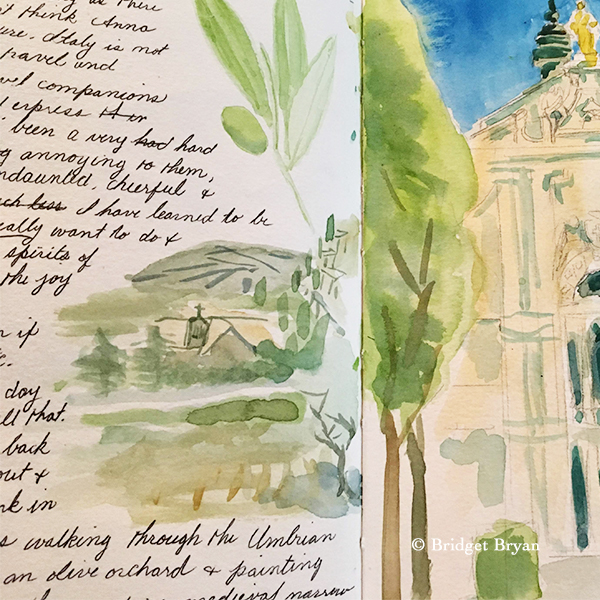 as There
't think Anna
ure. Italy is not
travel and
vel companions
d express it or
been a very had hard
g annoying to them,
ndaunted, cheerful &
ch less I have learned to be
eally want to do &
spirits of
the joy
if
day
ll that.
back
out &
nk in
s walking through the Umbrian
an olive orchard & painting
medieval narrow
© Bridget Bryan